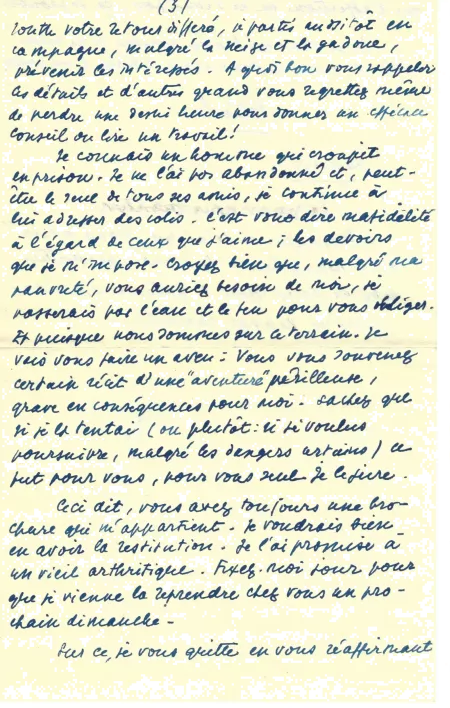 (3)
toute votre retour différé, je partis aussitôt en
campagne, malgré la neige et la gadoue,
prévenir les intéressés. A quoi bon vous rappeler
les détails et d'autres quand vous regrettez même
de perdre une demi heure pour donner un efficace
conseil ou lire un travail!
Je connais un homme qui croupit
en prison. Je ne l'ai pas abandonné et, peut-
être le seul de tous ses amis, je continue à
lui adresser des colis. C'est vous dire ma fidélité
à l'égard de ceux que j'aime; les devoirs
que je m'impose. Croyez bien que, malgré ma
pauvreté, vous auriez besoin de moi, je
passerais par l'eau et le feu pour vous obliger.
Et puisque nous sommes sur ce terrain. Je
vais vous faire un aveu: Vous vous souvenez
certain récit d'une "aventure" périlleuse,
grave en conséquences pour moi. Sachez que
si je la tentai (ou plutôt: si je voulus
poursuivre, malgré les dangers certains) ce
fut pour vous, pour vous seul je le jure.
Ceci dit, vous avez toujours une bro-
chure qui m'appartient. Je voudrais bien
en avoir la restitution. Je l'ai promise à
un vieil arthritique. Fixez-moi jour pour
que je vienne la reprendre chez vous un pro-
chain dimanche-
Sur ce, je vous quitte en vous réaffirmant